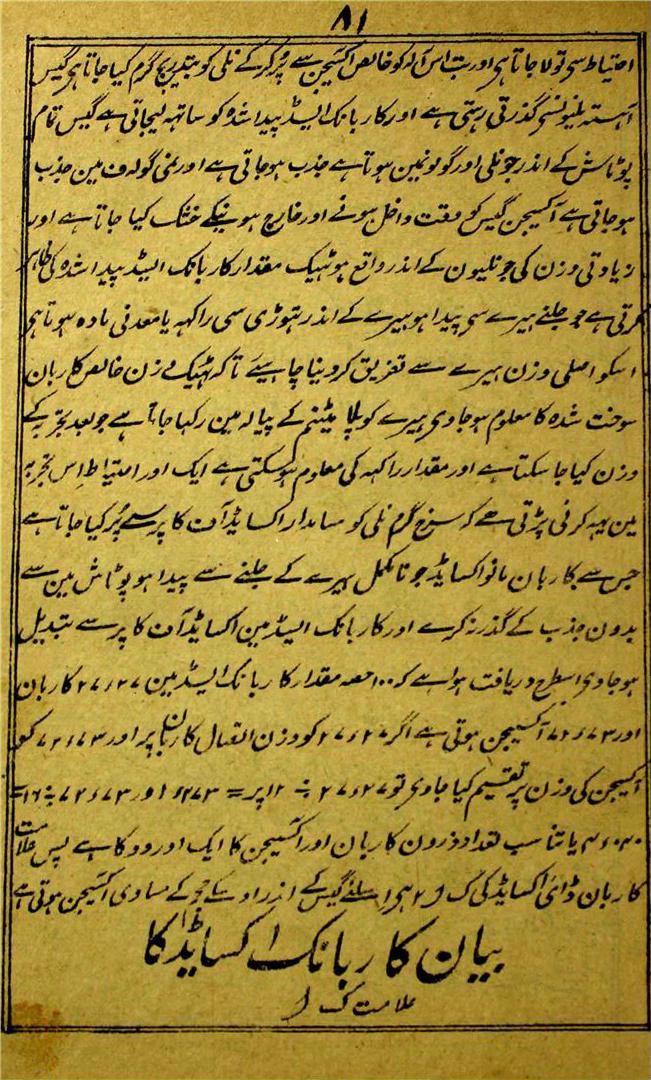 ۸۱
احتیاط سی تولا جاتا ہی اور تب اس آلہ کو خالص اکسیجن سے پُر کر کے نلی کو بتدریج گرم کیا جاتا ہی گیس
آہستہ نلیونسی گذرتی رہتی ہے اور کاربانک ایسڈ پیدا شدہ کو ساتہہ لیجاتی ہے گیس تمام
پوٹاش کے اندر جو نلی اور گولونمین ہوتا ہے جذب ہوجاتی ہے اور نمی گولہ ف مین جذب
ہوجاتی ہے آکسیجن گیس کو وقت داخل ہونے اور خارج ہونیکے خشک کیا جاتا ہے اور
زیادتی وزن کی جو نلیون کے اندر واقع ہو ٹہیک مقدار کاربانک ایسڈ پیدا شدہ کی ظاہر
کرتی ہے جو جلنے ہیرے سی پیدا ہو ہیرے کے اندر تہوڑی سی راکہہ یا معدنی مادہ ہوتا ہی
اسکو اصلی وزن ہیرے سے تفریق کردینا چاہیے تاکہ ٹہیک وزن خالص کاربان
سوخت شدہ کا معلوم ہوجاوی ہیرے کو پلاٹینم کے پیالہ مین رکہا جاتا ہے جو بعد تجربہ کے
وزن کیا جا سکتا ہے اور مقدار راکہہ کی معلوم ہوسکتی ہے ایک اور احتیاط اِس تجربہ
مین یہہ کرنی پڑتی ہے کہ سرخ گرم نلی کو سامدار اکسایڈ آف کاپر سے پُر کیا جاتا ہے
جس سے کاربان مانواکسایڈ جو نامکمل ہیرے کے جلنے سے پیدا ہو پوٹاش مین سے
بدون جذب کے گذر نکرے اور کاربانک ایسڈ مین اکسایڈ آف کاپر سے تبدیل
ہوجاوی اسطرح دریافت ہوا ہے کہ ۱۰۰ حصہ مقدار کاربانک ایسڈ مین ۲۷ء۲۷ کاربان
اور ۷۳ء۷۲ آکسیجن ہوتی ہے اگر ۲۷ء۲۷ کو وزن اتصال کاربان پر اور ۷۳ء۷۲ کو
آکسیجن کی وزن پر تقسیم کیا جاوی تو ۲۷ء۲۷ ÷ ۱۲ پر = ۲۷۳ء۲ اور ۷۳ء۷۲ ÷ ۱۶ =
یا تناسب تعداد ذرون کاربان اور اکسیجن کا ایک اور دو کا ہے پس علامت
کاربان ڈائی اکسایڈ کی ک ا۲ ہی اسلئے گیس کے اندر اوسکے حجم کے مساوی اکسیجن ہوتی ہے
بیان کاربانک اکسایڈ کا
علامت ک ا